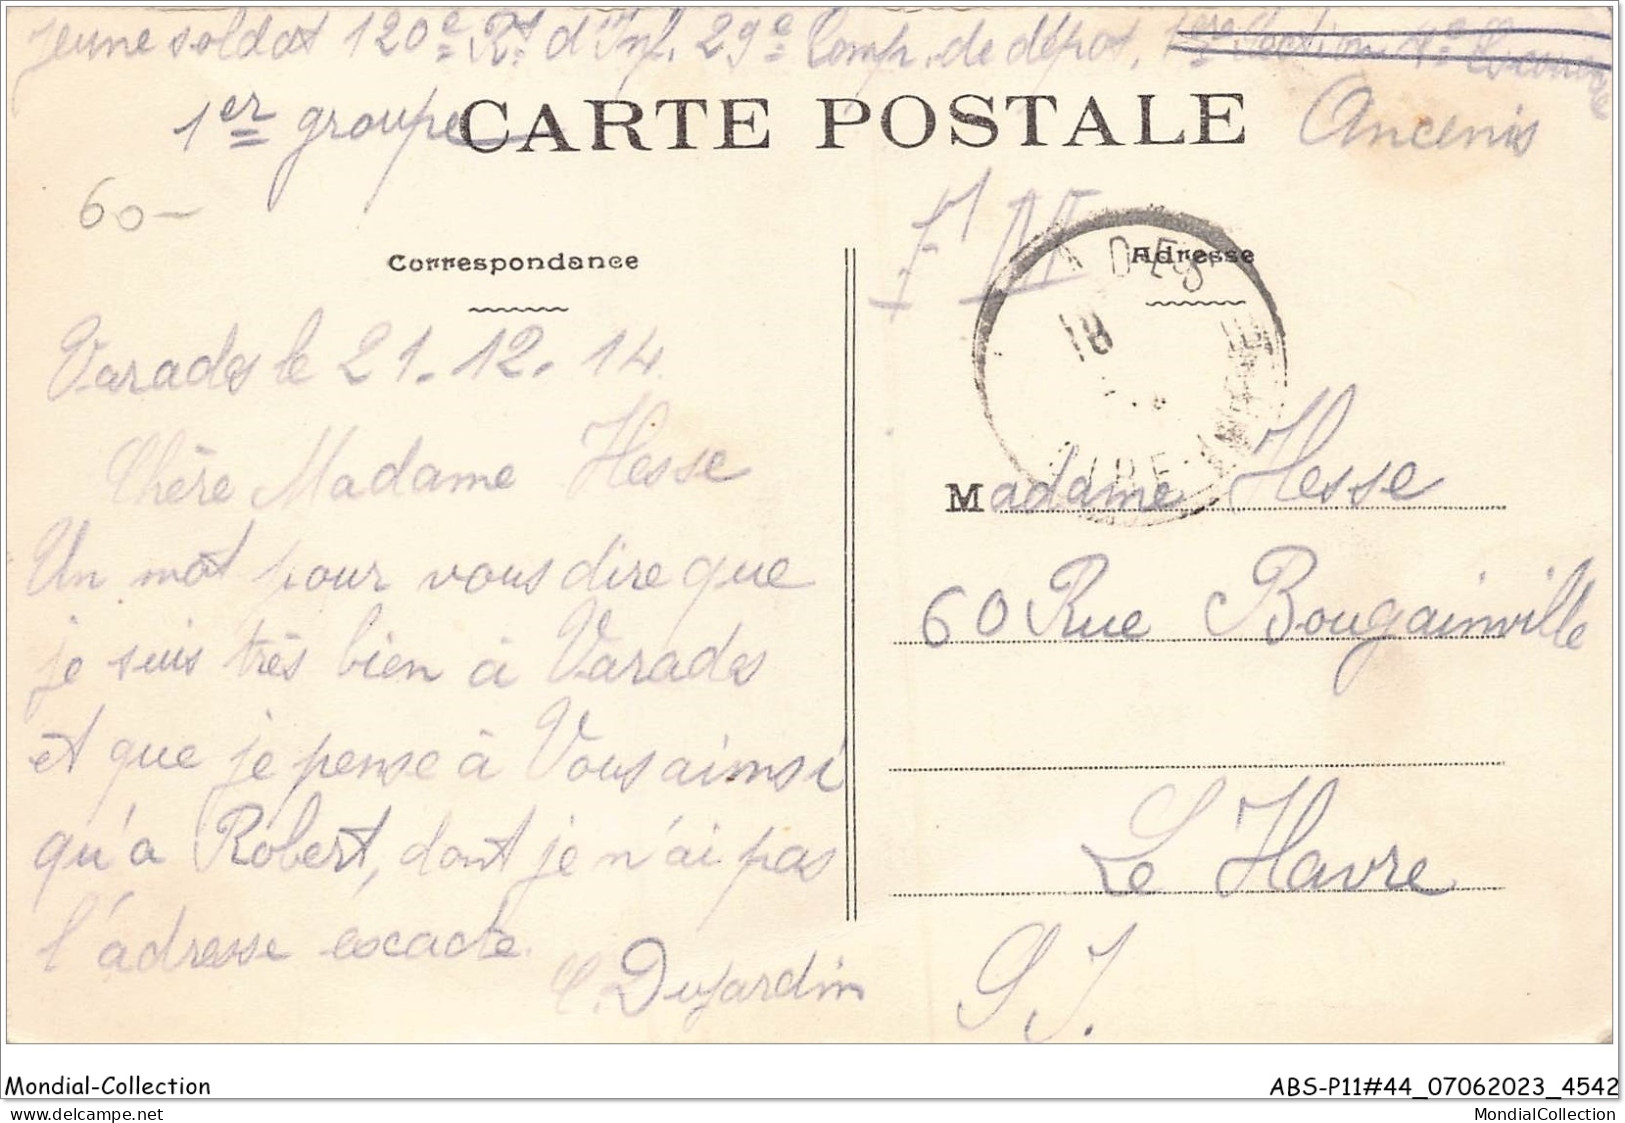 Jeune soldat 120e Rt. d'Inf. 29e Comp. de dépot, 1ère Section 4e Escouade
1er groupe
CARTE POSTALE
Ancenis
60-
F M
Correspondance
Adresse
Varades le 21.12.14
Chère Madame Hesse
Un mot pour vous dire que
je suis très bien à Varades
et que je pense à Vous ainsi
qu'à Robert, dont je n'ai pas
l'adresse exacte.
C. Dujardin
18
Madame Hesse
60 Rue Bougainville
Le Havre
S. I.
Mondial-Collection
ABS-P11#44_07062023_4542
MondialCollection